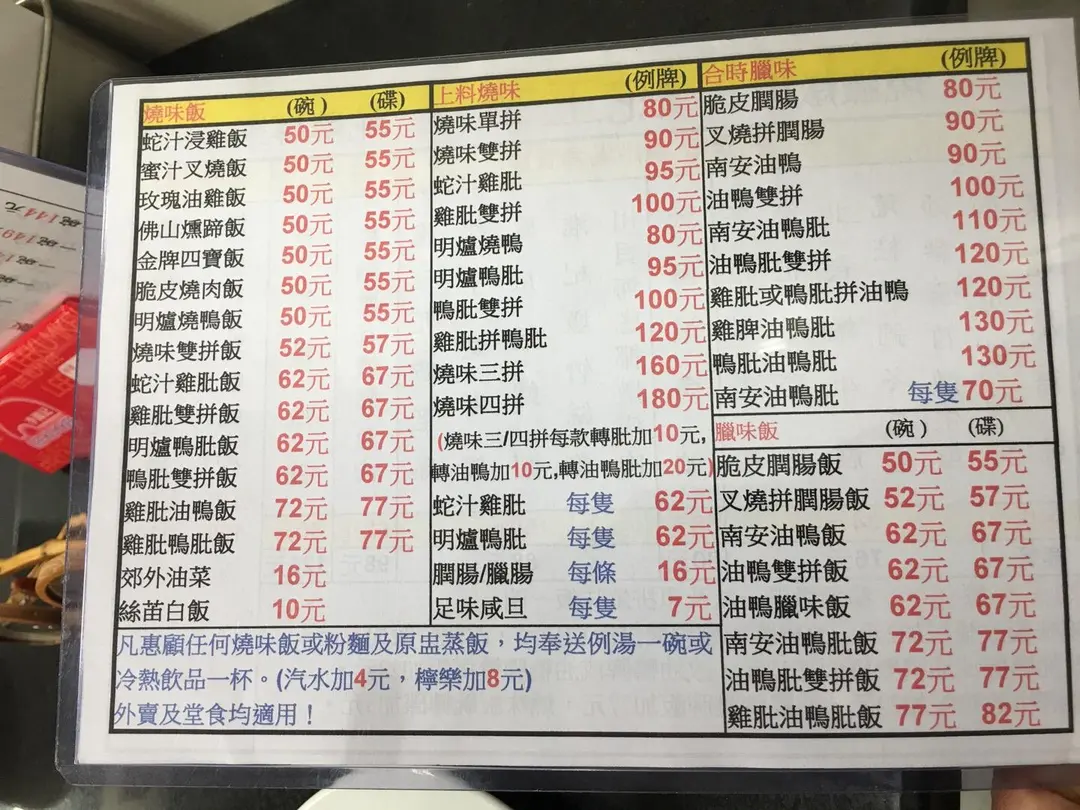 燒味飯 (碗) (碟)
蛇汁浸雞飯 50元 55元
蜜汁叉燒飯 50元 55元
玫瑰油雞飯 50元 55元
佛山燻蹄飯 50元 55元
金牌四寶飯 50元 55元
脆皮燒肉飯 50元 55元
明爐燒鴨飯 50元 55元
燒味雙拼飯 52元 57元
蛇汁雞肶飯 62元 67元
雞肶雙拼飯 62元 67元
明爐鴨肶飯 62元 67元
鴨肶雙拼飯 62元 67元
雞肶油鴨飯 72元 77元
雞肶鴨肶飯 72元 77元
郊外油菜 16元
絲苗白飯 10元
上料燒味 (例牌)
燒味單拼 80元
燒味雙拼 90元
蛇汁雞肶 95元
雞肶雙拼 100元
明爐燒鴨 80元
明爐鴨肶 95元
鴨肶雙拼 100元
雞肶拼鴨肶 120元
燒味三拼 160元
燒味四拼 180元
(燒味三/四拼每款轉肶加10元,
轉油鴨加10元,轉油鴨肶加20元)
蛇汁雞肶 每隻 62元
明爐鴨肶 每隻 62元
膶腸/臘腸 每條 16元
足味咸旦 每隻 7元
合時臘味 (例牌)
脆皮膶腸 80元
叉燒拼膶腸 90元
南安油鴨 90元
油鴨雙拼 100元
南安油鴨肶 110元
油鴨肶雙拼 120元
雞肶或鴨肶拼油鴨 120元
雞脾油鴨肶 130元
鴨肶油鴨肶 130元
南安油鴨肶 每隻 70元
臘味飯 (碗) (碟)
脆皮膶腸飯 50元 55元
叉燒拼膶腸飯 52元 57元
南安油鴨飯 62元 67元
油鴨雙拼飯 62元 67元
油鴨臘味飯 62元 67元
南安油鴨肶飯 72元 77元
油鴨肶雙拼飯 72元 77元
雞肶油鴨肶飯 77元 82元
凡惠顧任何燒味飯或粉麵及原盅蒸飯，均奉送例湯一碗或
冷熱飲品一杯。(汽水加4元，檸樂加8元)
外賣及堂食均適用！